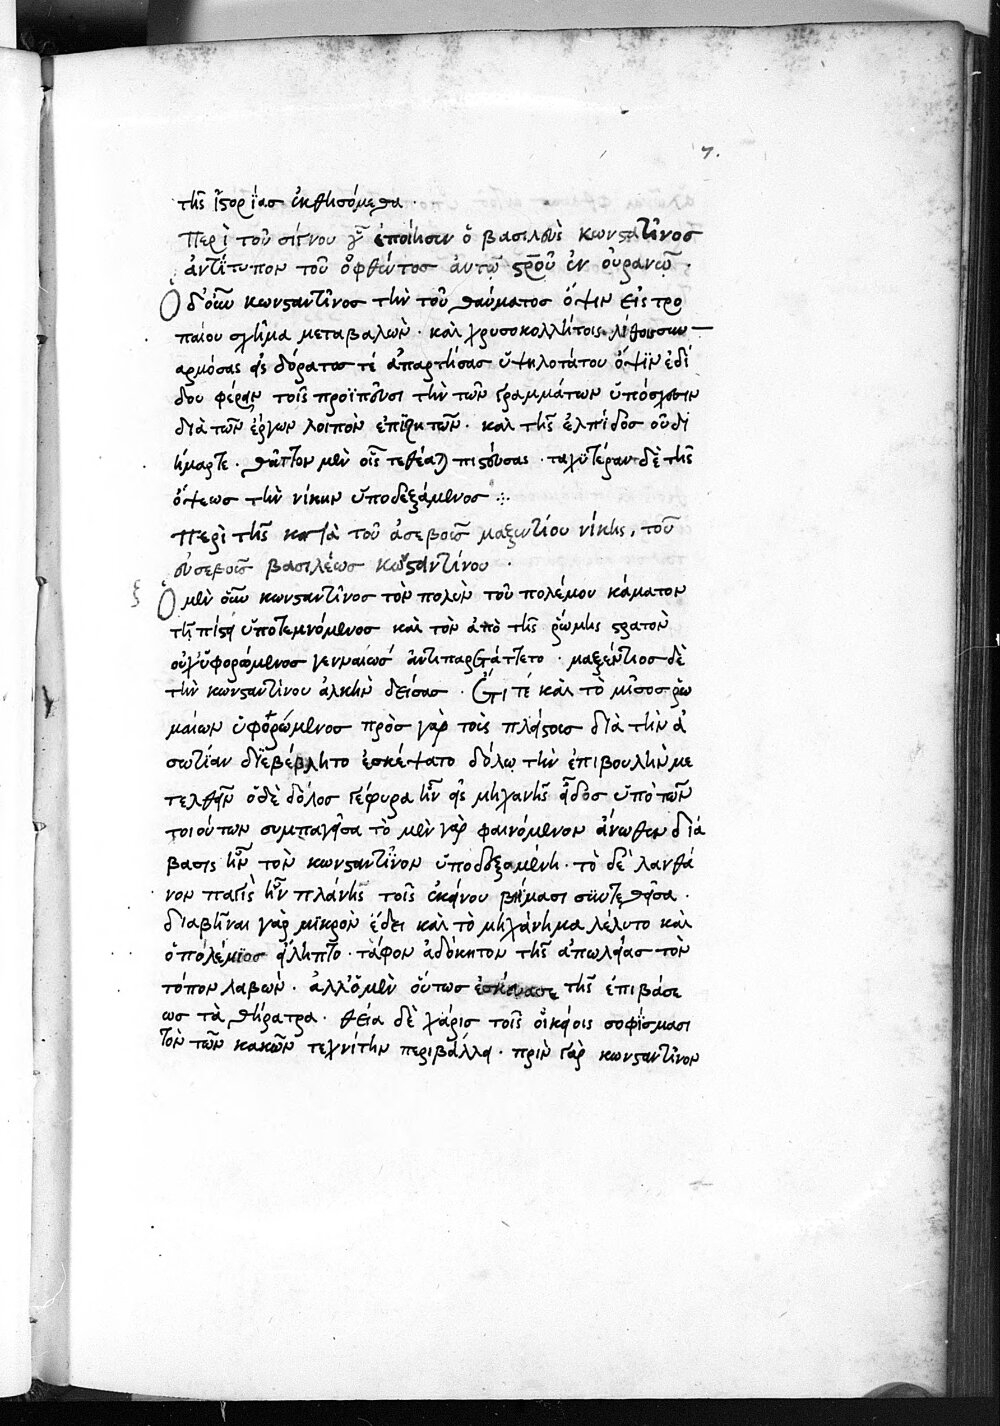 7.
τῆς ἱστορίας ἐκθησόμεθα.
Περὶ τοῦ σίγνου ὃ ἐποίησεν ὁ βασιλεὺς κωνσταντῖνος
ἀντίτυπον τοῦ ὀφθέντος αὐτῷ σταυροῦ ἐν οὐρανῷ.
Ὁ δ' οὖν κωνσταντῖνος τὴν τοῦ θαύματος ὄψιν εἰς τρο
παίου σχῆμα μεταβαλὼν. καὶ χρυσοκολλήτοις λίθοις συν
αρμόσας εἰς δόρατος τέ ἀπαρτήσας ὑψηλοτάτου ὄψιν ἐδί
δου φέρειν τοῖς προϊποῦσι τὴν τῶν γραμμάτων ὑπόσχεσιν
διὰ τῶν ἔργων λοιπὸν ἐπιζητῶν. καὶ τῆς ἐλπίδος οὐδι
ήμαρτε. θᾶττον μὲν οἷς τεθέαται πιστεύσας. ταχυτέραν δὲ τῆς
ὄψεως τὴν νίκην ὑποδεξάμενος
Περὶ τῆς κατὰ τοῦ ἀσεβοῦς μαξεντίου νίκης, τοῦ
εὐσεβοῦς βασιλέως κωνσταντίνου.
Ὁ μὲν οὖν κωνσταντῖνος τὸν πολὺν τοῦ πολέμου κάματον
τῇ πίστει ὑποτεμνόμενος καὶ τὸν ἀπὸ τῆς ῥώμης στρατὸν
οὐχ ὑφορώμενος γενναίως ἀντιπαρετάττετο. μαξέντιος δὲ
τὴν κωνσταντίνου ἀλκὴν δείσας. ἔτι τέ καὶ τὸ μῖσος ῥω
μαίων ὑφορώμενος πρὸς γὰρ τοῖς πλείστοις διὰ τὴν ἀ
σωτίαν διεβέβλητο ἐσκέψατο δόλῳ τὴν ἐπιβουλὴν με
τελθεῖν ὁ δὲ δόλος γέφυρα ἦν εἰς μηχανῆς εἶδος ὑπὸ τῶν
τοιούτων συμπαγεῖσα τὸ μὲν γὰρ φαινόμενον ἄνωθεν διά
βασις ἦν τὸν κωνσταντῖνον ὑποδεξαμένη. τὸ δὲ λανθά
νον παγὶς ἦν πλάνης τοῖς ἐκείνου βήμασι συντεθεῖσα.
διαβῆναι γὰρ μικρὸν ἔδει καὶ τὸ μηχάνημα λέλυτο καὶ
ὁ πολέμιος εἴληπτο. τάφον ἀδόκητον τῆς ἀπωλείας τὸν
τόπον λαβών. ἀλλ' ὁ μὲν οὕτως ἐσκεύασε τῆς ἐπιβάσε
ως τὰ θήρατρα. θεία δὲ χάρις τοῖς οἰκείοις σοφίσμασι
τὸν τῶν κακῶν τεχνίτην περιβάλλει. πρὶν γὰρ κωνσταντῖνον